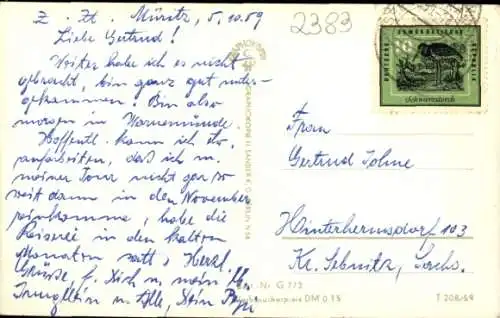 Z. Zt. Müritz, 5.10.59
Liebe Gertrud!
Weiter habe ich es nicht
gebracht, bin ganz gut unter-
gekommen! Bin also
morgen in Warnemünde.
Hoffentl. kann ich
daß ich m.
meiner Tour nicht gar so
weit dann in den November
reinkomme, habe die
Reiserei in den kalten
Monaten satt. Herzl.
Grüße f. Dich u. mein
u. Alle, Dein
2383
DEUTSCHE DEMOKRATISCHE REPUBLIK
10
Schwarzstorch
Frau
Gertrud Johne
Hinterhermsdorf 103
Kr. Sebnitz, Sachs.
Best.-Nr. G 773
Verbraucherpreis DM 0.15
T 208/59